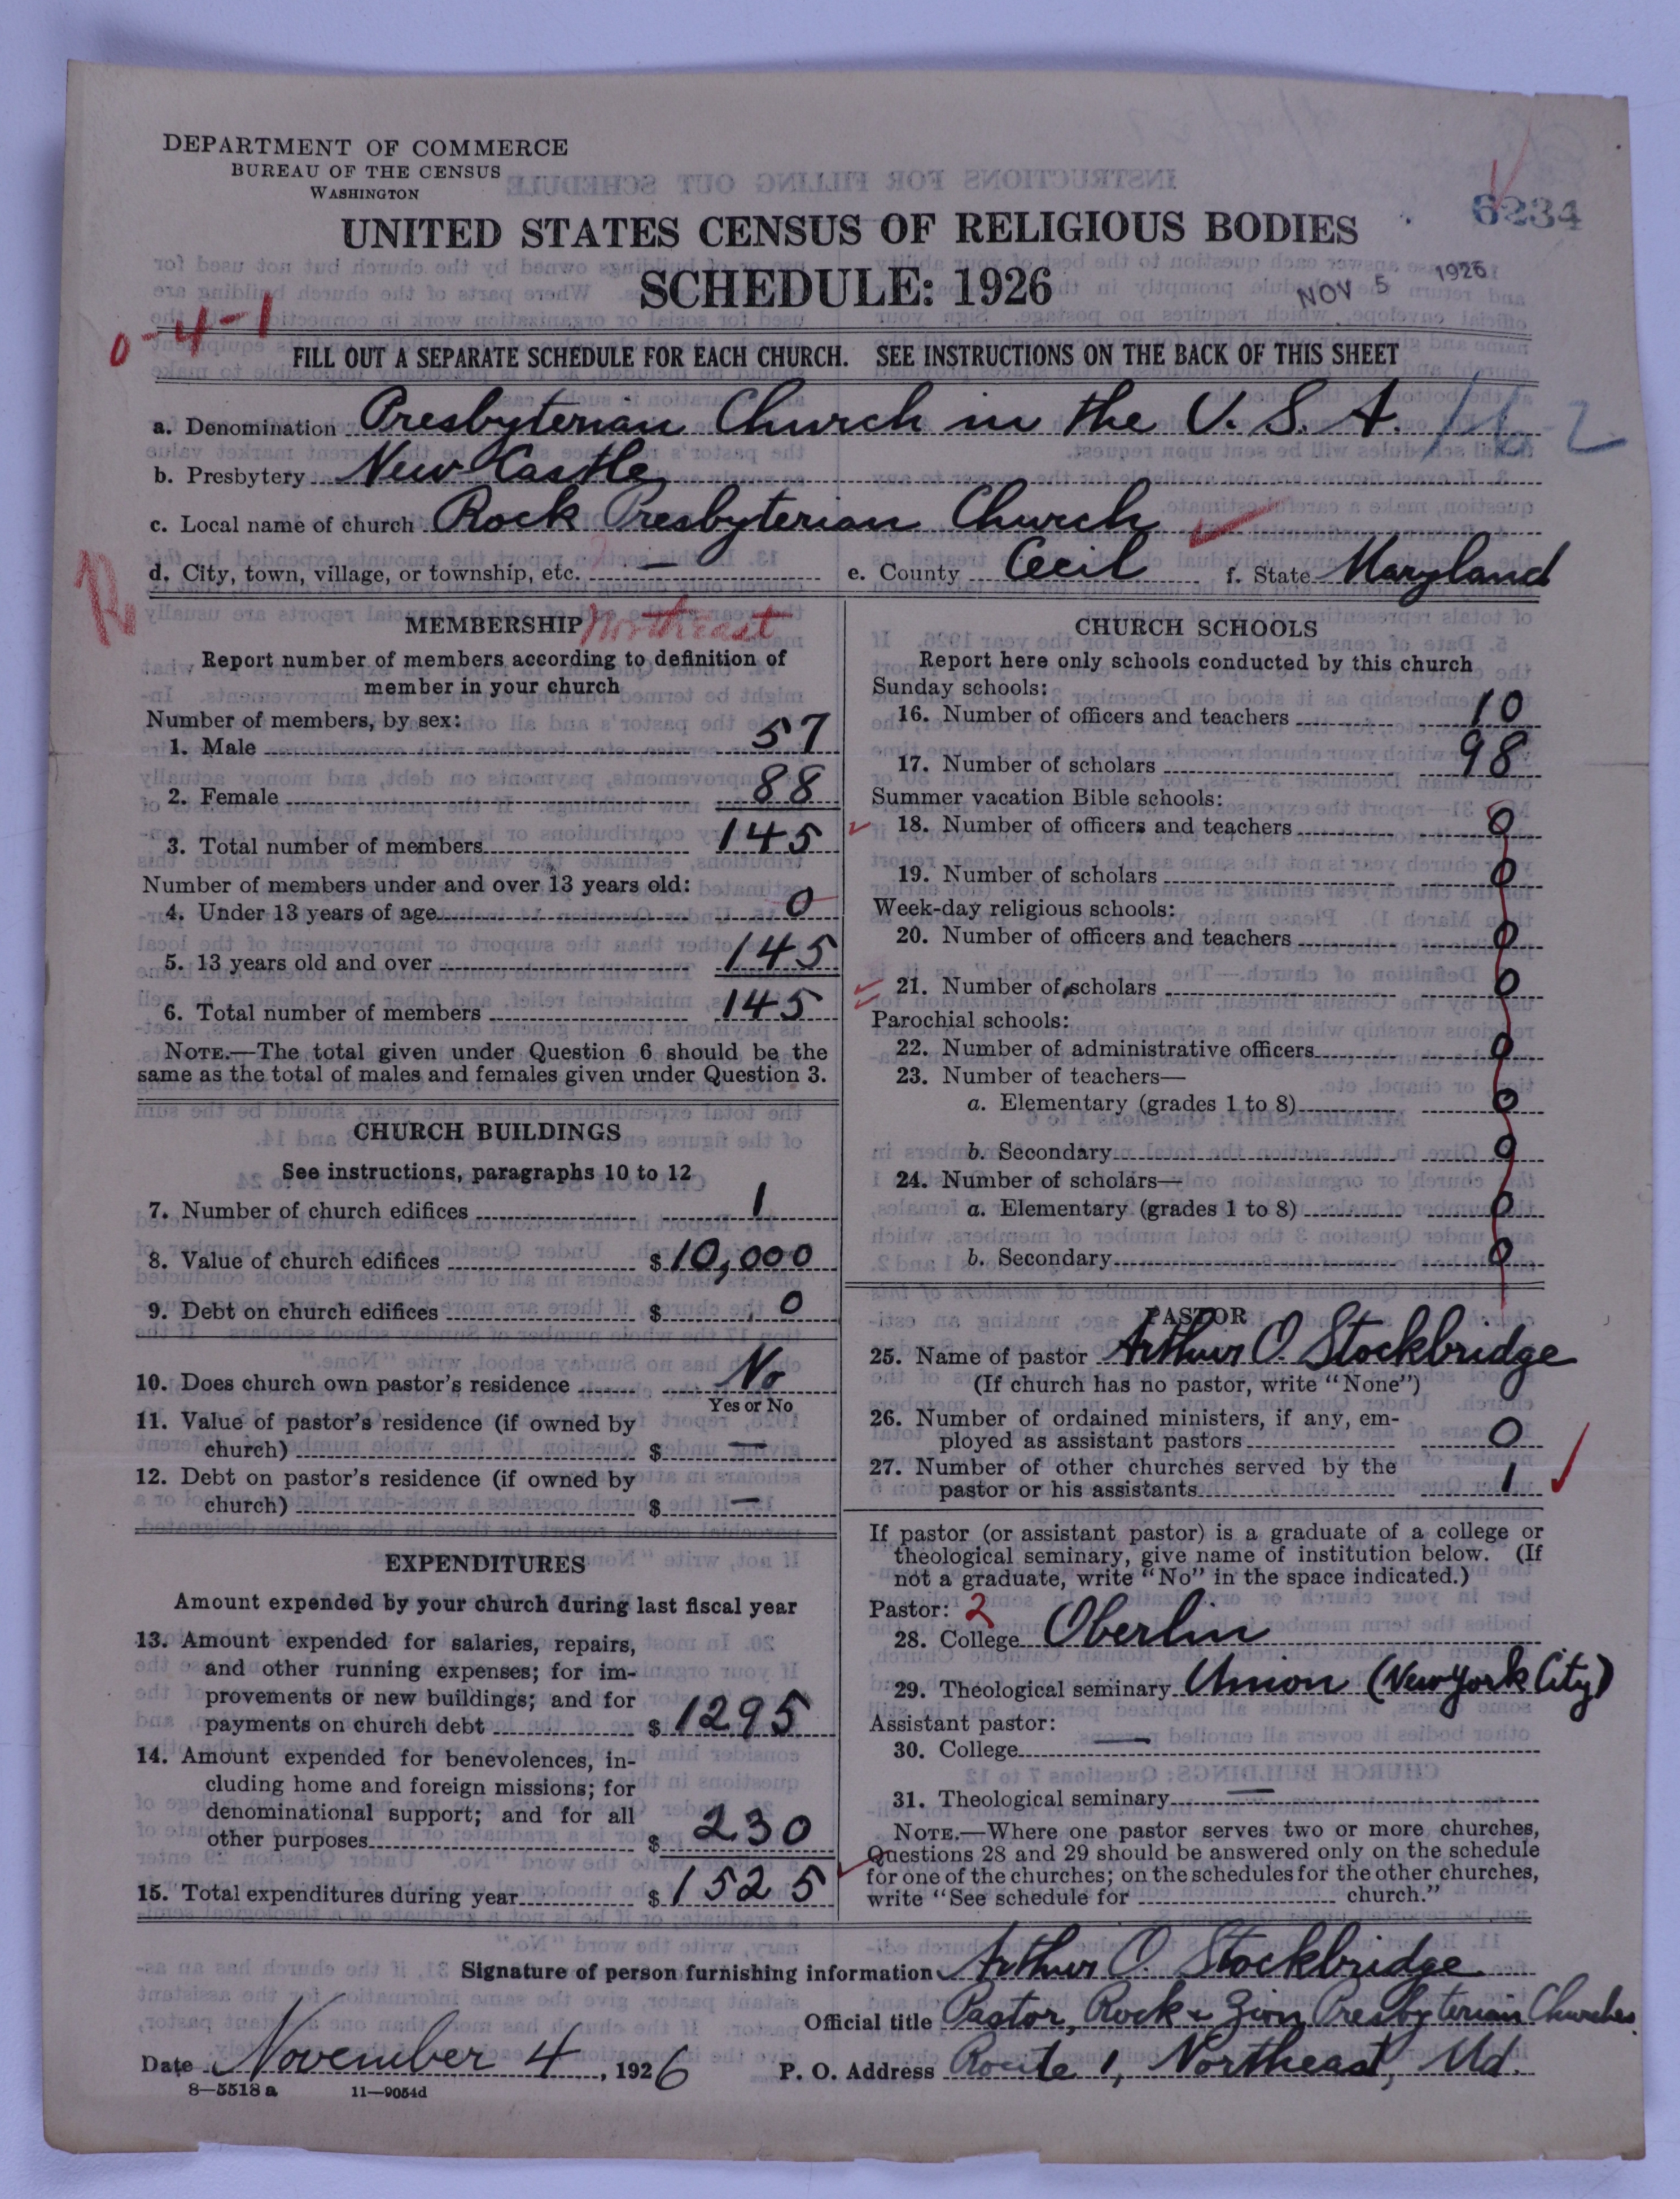 DEPARTMENT OF COMMERCE
BUREAU OF THE CENSUS
WASHINGTON
6234
UNITED STATES CENSUS OF RELIGIOUS BODIES
SCHEDULE: 1926
NOV 5 1926
0-4-1
FILL OUT A SEPARATE SCHEDULE FOR EACH CHURCH. SEE INSTRUCTIONS ON THE BACK OF THIS SHEET
a. Denomination Presbyterian Church in the U. S. A. 16-2
b. Presbytery New Castle
c. Local name of church Rock Presbyterian Church
d. City, town, village, or township, etc. — e. County Cecil f. State Maryland
Northeast
MEMBERSHIP
Report number of members according to definition of
member in your church
Number of members, by sex:
1. Male 57
2. Female 88
3. Total number of members 145
Number of members under and over 13 years old:
4. Under 13 years of age 0
5. 13 years old and over 145
6. Total number of members 145
NOTE.—The total given under Question 6 should be the
same as the total of males and females given under Question 3.
CHURCH BUILDINGS
See instructions, paragraphs 10 to 12
7. Number of church edifices 1
8. Value of church edifices $ 10,000
9. Debt on church edifices $ 0
10. Does church own pastor's residence No
Yes or No
11. Value of pastor's residence (if owned by
church) $ —
12. Debt on pastor's residence (if owned by
church) $ —
EXPENDITURES
Amount expended by your church during last fiscal year
13. Amount expended for salaries, repairs,
and other running expenses; for im-
provements or new buildings; and for
payments on church debt $ 1295
14. Amount expended for benevolences, in-
cluding home and foreign missions; for
denominational support; and for all
other purposes $ 230
15. Total expenditures during year $ 1525
CHURCH SCHOOLS
Report here only schools conducted by this church
Sunday schools:
16. Number of officers and teachers 10
17. Number of scholars 98
Summer vacation Bible schools:
18. Number of officers and teachers 0
19. Number of scholars 0
Week-day religious schools:
20. Number of officers and teachers 0
21. Number of scholars 0
Parochial schools:
22. Number of administrative officers 0
23. Number of teachers—
a. Elementary (grades 1 to 8) 0
b. Secondary 0
24. Number of scholars—
a. Elementary (grades 1 to 8) 0
b. Secondary 0
PASTOR
25. Name of pastor Arthur O. Stockbridge
(If church has no pastor, write "None")
26. Number of ordained ministers, if any, em-
ployed as assistant pastors 0
27. Number of other churches served by the
pastor or his assistants 1
If pastor (or assistant pastor) is a graduate of a college or
theological seminary, give name of institution below. (If
not a graduate, write "No" in the space indicated.)
Pastor: 2
28. College Oberlin
29. Theological seminary Union (New York City)
Assistant pastor:
30. College —
31. Theological seminary —
NOTE.—Where one pastor serves two or more churches,
Questions 28 and 29 should be answered only on the schedule
for one of the churches; on the schedules for the other churches,
write "See schedule for church."
Signature of person furnishing information Arthur O. Stockbridge
Official title Pastor, Rock & Zion Presbyterian Churches
Date November 4, 1926 P. O. Address Route 1, Northeast, Md.
8—5518 a 11—9054d